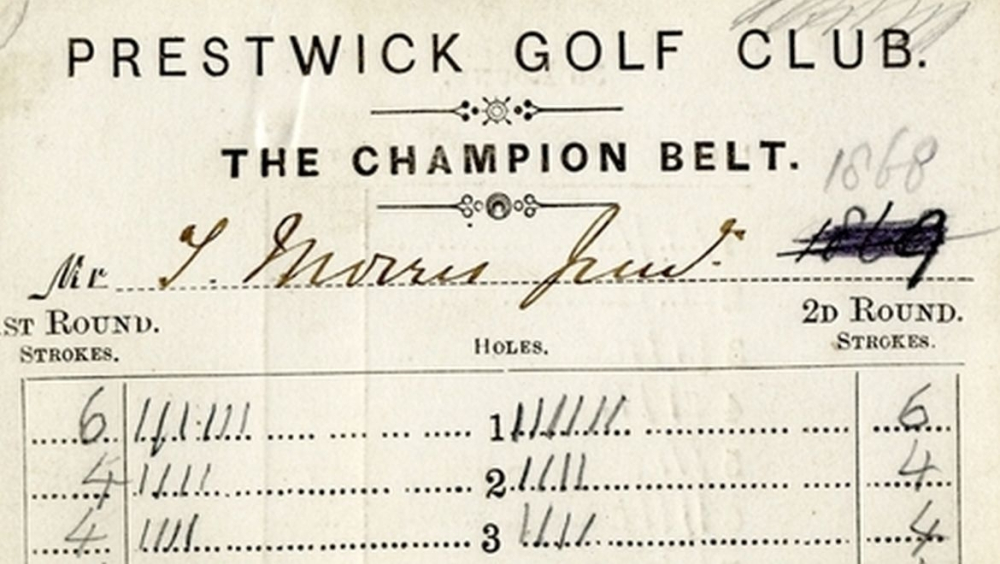 PRESTWICK GOLF CLUB.
THE CHAMPION BELT.
1868
Mr T. Morris Junr. 1869
ST ROUND. 2D ROUND.
STROKES. HOLES. STROKES.
6 1 6
4 2 4
4 3 4